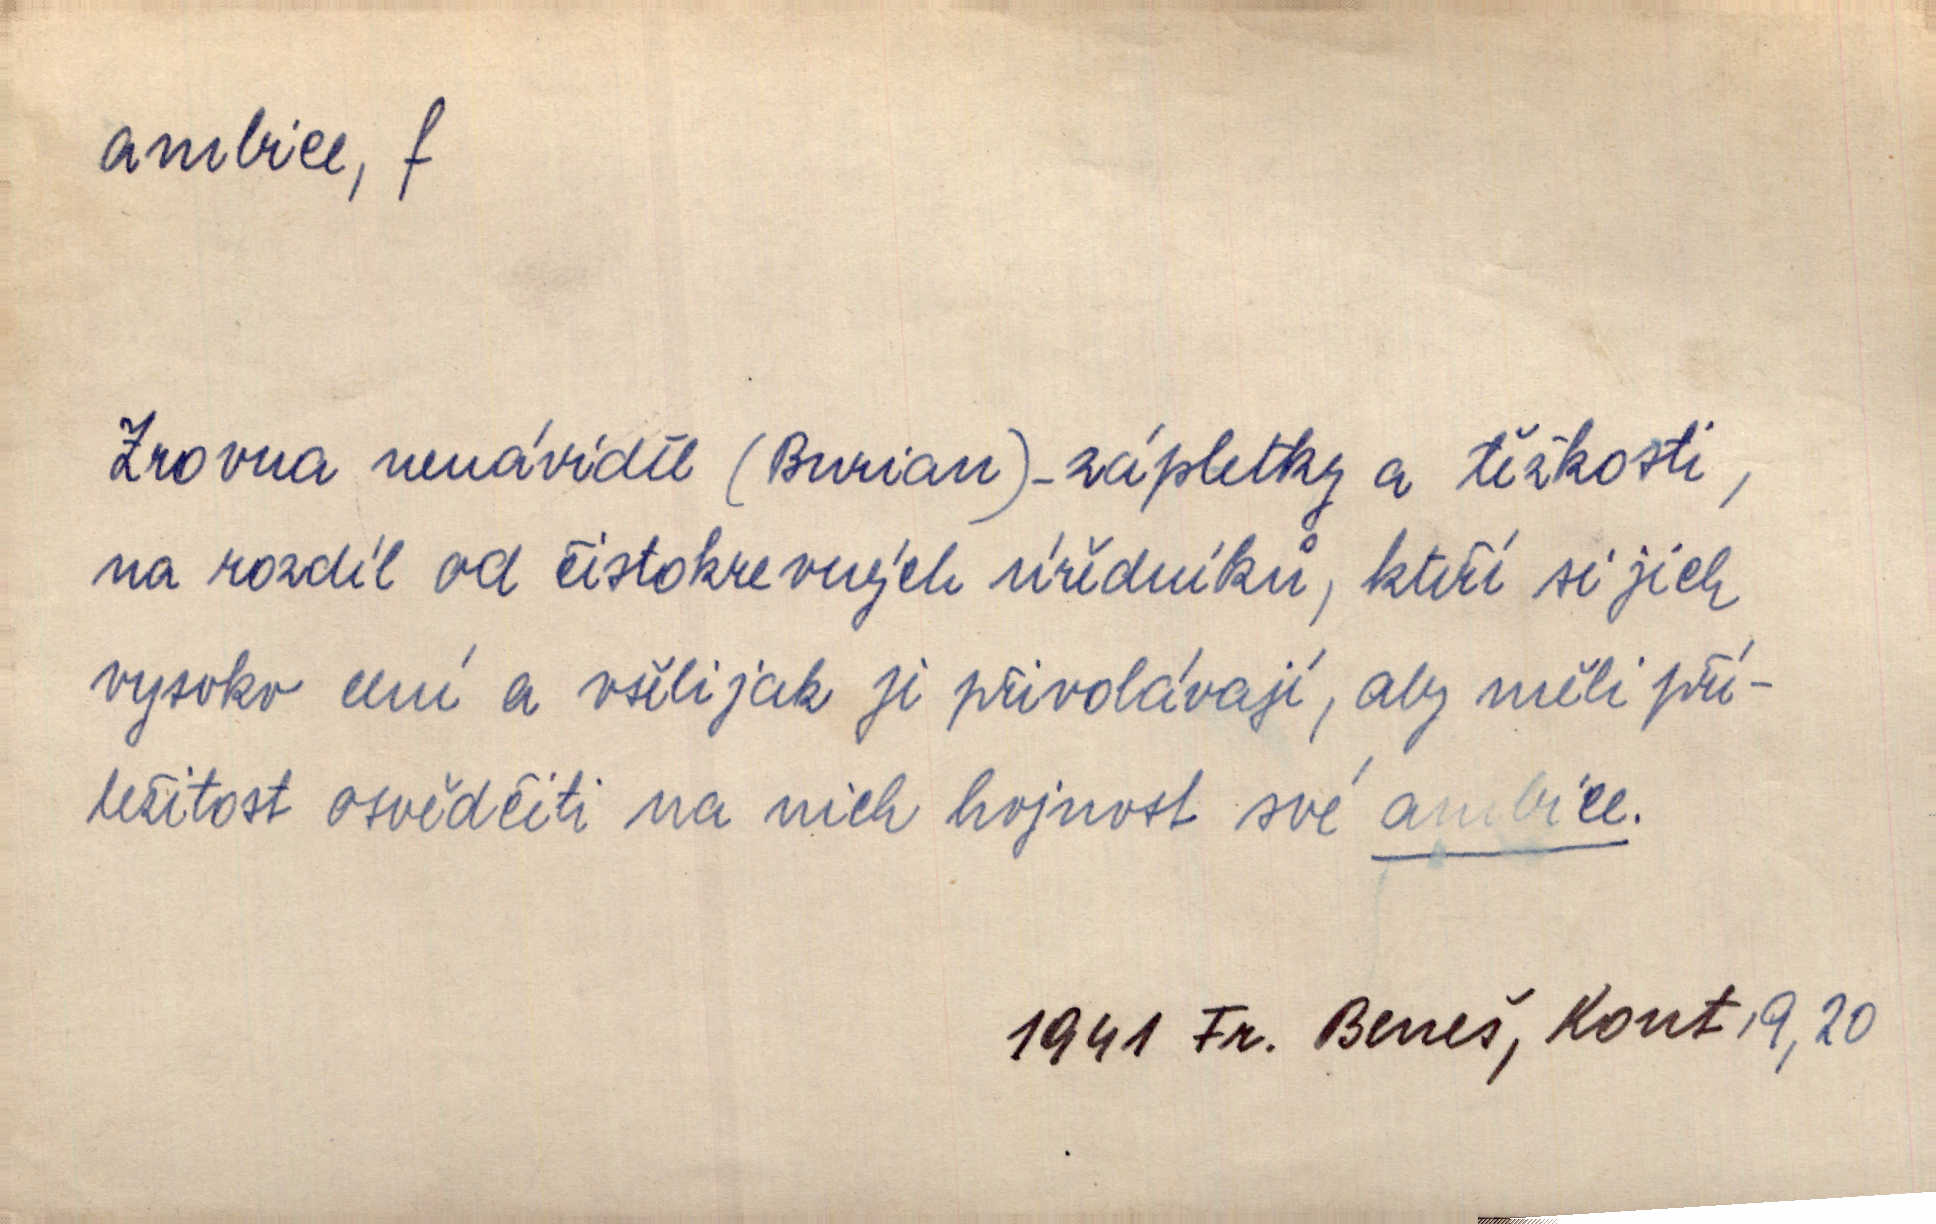 ambice, f
Zrovna nenáviděl (Burian) - zápletky a těžkosti,
na rozdíl od čistokrevných úředníků, kteří si jich
vysoko cení a všelijak ji přivolávají, aby měli pří-
ležitost osvědčiti na nich hojnost své ambice.
1941 Fr. Beneš, Kont 19, 20